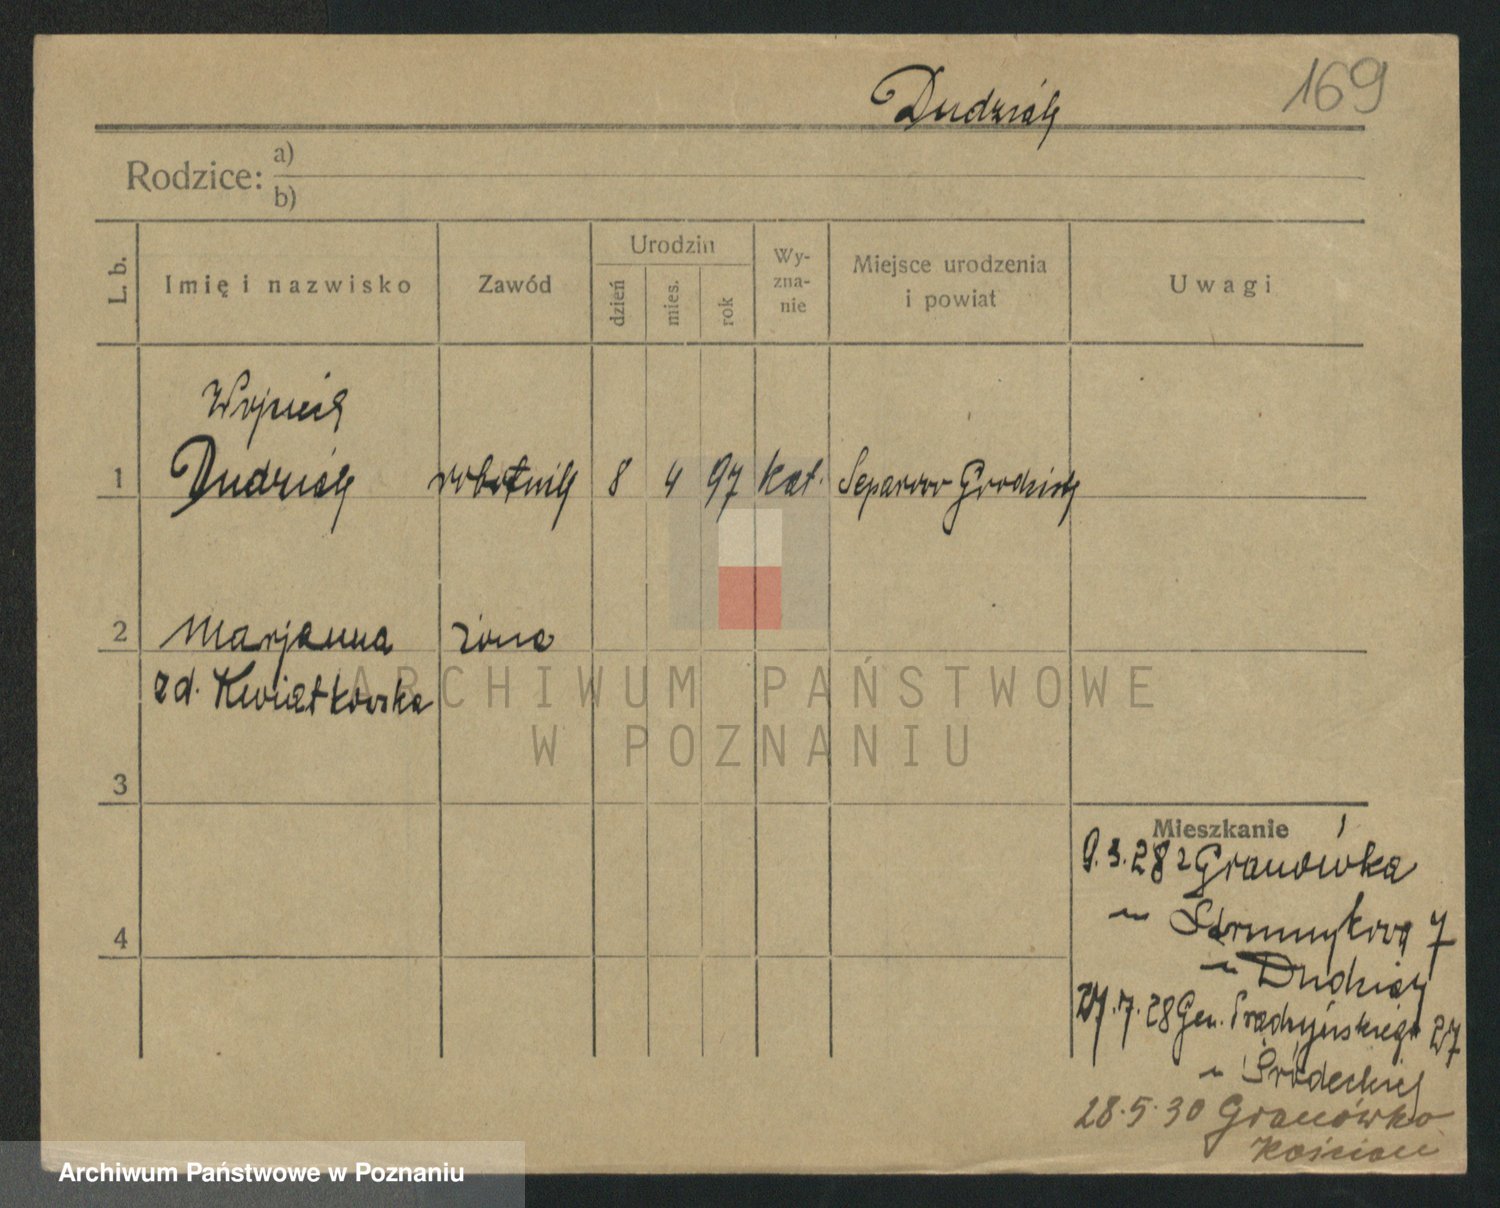 169
Dudziak
Rodzice: a)
b)
L. b.
Imię i nazwisko
Zawód
Urodzin
dzień
mies.
rok
Wy-
zna-
nie
Miejsce urodzenia
i powiat
Uwagi
Wojciech
1 Dudziak robotnik 8 4 97 kat. Separowo Grodzisk
2 Marjanna żona
zd. Kwiatkowska
3
4
Mieszkanie
9.3.28 z Granówka
7
u Dudziak
27.7.28 Gen. Prądzyńskiego 27
u Środeckiej
28.5.30 Granówko
Kościan
ARCHIWUM PAŃSTWOWE
W POZNANIU
Archiwum Państwowe w Poznaniu